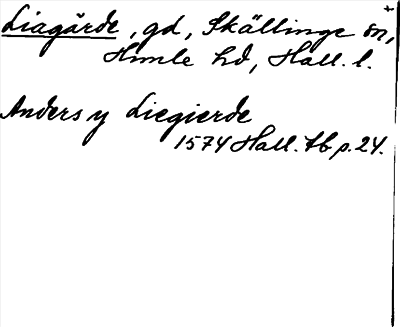 Liagärde, gd, Skällinge sn,
Himle hd, Hall. l.
Anders y Liegierde
1574 Hall. Tb p. 24.